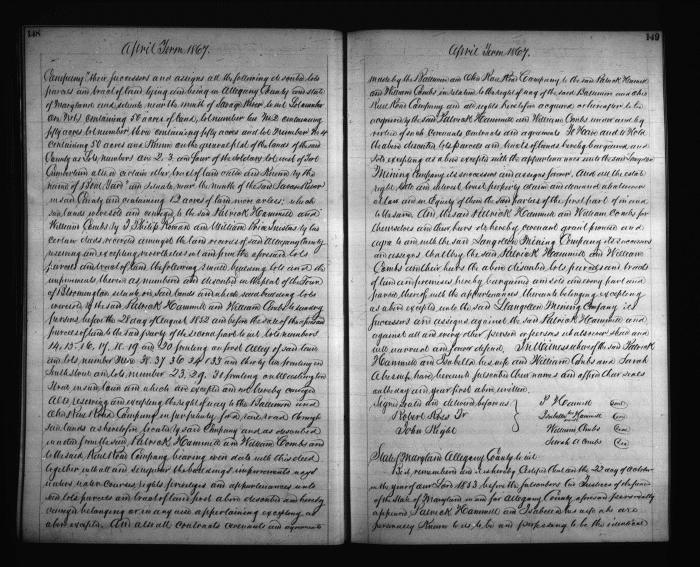 148
April Term 1867.
Company their successors and assigns all the following described lots
parcels and tract of land lying and being in Allegany County and State
of Maryland and situate near the mouth of Savage River to wit Lot number
One No1 containing 50 acres of land, lot number two No2 containing
fifty acres lot number three containing fifty acres and lot Number No 4
containing 50 acres and Known on the general plot of the lands of the said
County as Lots numbers one 2, 3, and four of the soldiers lots west of Fort
Cumberland also a certain other tract of land called and Known by the
name of and situate near the mouth of the said Savage River
in said County and containing 12 acres of land more or less; which
said lands were sold and conveyed to the said Patrick Hammill and
William Combs by J Philip Roman and William by their
certain deeds recorded amongst the land records of said Allegany County
reserving and excepting nevertheless out and from the aforesaid lots
parcels and tract of land the following small building lots and the
improvements thereon as numbered and described in the plat of the Town
of Bloomington situate on said lands and which said building lots
were sold by the said Patrick Hammill and William Combs to sundry
persons before the 28 day of August 1852 and before the sale of the aforesaid
parcels of land to the said party of the second part to wit, lots numbers
14, 15, 16, 17, 18, 19 and 20 fronting on first Alley of said town
and lots, number 38. 37 36 34 & 33 and thereby fronting on
South Street and lots number 23, 29, 31 fronting on
Street in said town and which are excepted and not hereby conveyed
Also reserving and excepting the right of way to the Baltimore and
Ohio Rail Road Company in perpetuity for said rail road through
said lands as heretofore located by said Company and as described
in a deed from the said Patrick Hammill and William Combs and
to the said Rail Road Company bearing even date with this deed
together with all and singular the buildings improvements ways
waters water courses rights privileges and appurtenances unto
said lots parcels and tract of land first above described and hereby
conveyed belonging or in any wise appertaining excepting as
above excepted. And also all contracts covenants and agreements
149
April Term 1867.
made by the Baltimore and Ohio Rail Road Company to the said Patrick Hammill
and William Combs in relation to the right of way of the said Baltimore and Ohio
Rail Road Company and all rights heretofore acquired or hereafter to be
acquired by the said Patrick Hammill and William Combs under and by
virtue of such covenants contracts and agreements To Have and to Hold
the above described lots parcels and tracts of lands hereby bargained and
sold excepting as above excepted with the appurtenances unto the said Llangollen
Mining Company its successors and assigns forever. And all the estate
right, title and interest trust property claim and demand whatsoever
at law and in Equity of them the said parties of the first part of in and
to the same. And the said Patrick Hammill and William Combs for
themselves and their heirs do hereby covenant grant promise and
agree to and with the said Llangollen Mining Company its successors
and assigns that they the said Patrick Hammill and William
Combs and their heirs the above described lots parcels and tracts
of land and premises hereby bargained and sold and every part and
parcel thereof with the appurtenances thereunto belonging excepting
as above excepted unto the said Llangollen Mining Company its
successors and assigns against the said Patrick Hammill and
against all and every other person or persons whatsoever shall and
will warrant and forever defend. In Witness whereof the said Patrick
Hammill and Isabella his wife and William Combs and Sarah
A his wife, have hereunto subscribed their names and affixed their seals
on the day and year first above written.
Signed sealed and delivered before us
Robert Ross Jr
John Kight
P Hammill (seal)
Isabella Hammill (seal)
William Combs (seal)
Sarah A Combs (seal)
State of Maryland Allegany County to wit:
Be it remembered and it is hereby Certified that on the 22 day of October
in the year of our Lord 1853 before the subscribers two Justices of the peace
of the State of Maryland in and for Allegany County aforesaid personally
appeared Patrick Hammill and Isabella his wife who are
personally Known to us to be and professing to be the identical